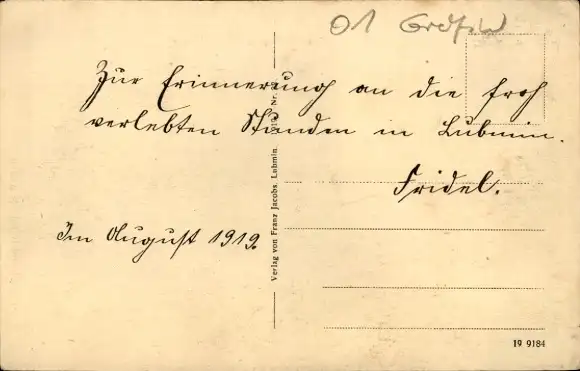 01 Grdf.W
Zur Erinnerung an die froh
verlebten Stunden in Lubmin.
Fridel.
Im August 1919.
Verlag von Franz Jacobs, Lubmin. Nr.
19 9184